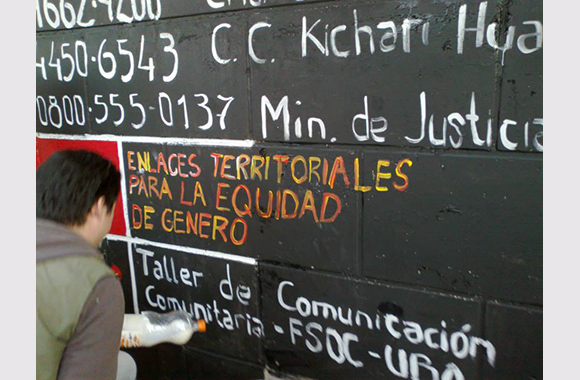 1662-4200
4450-6543
C.C. Kichari Hua
0800-555-0137
Min. de Justicia
ENLACES TERRITORIALES
PARA LA EQUIDAD
DE GENERO
Taller de Comunicación
Comunitaria-FSOC-UBA